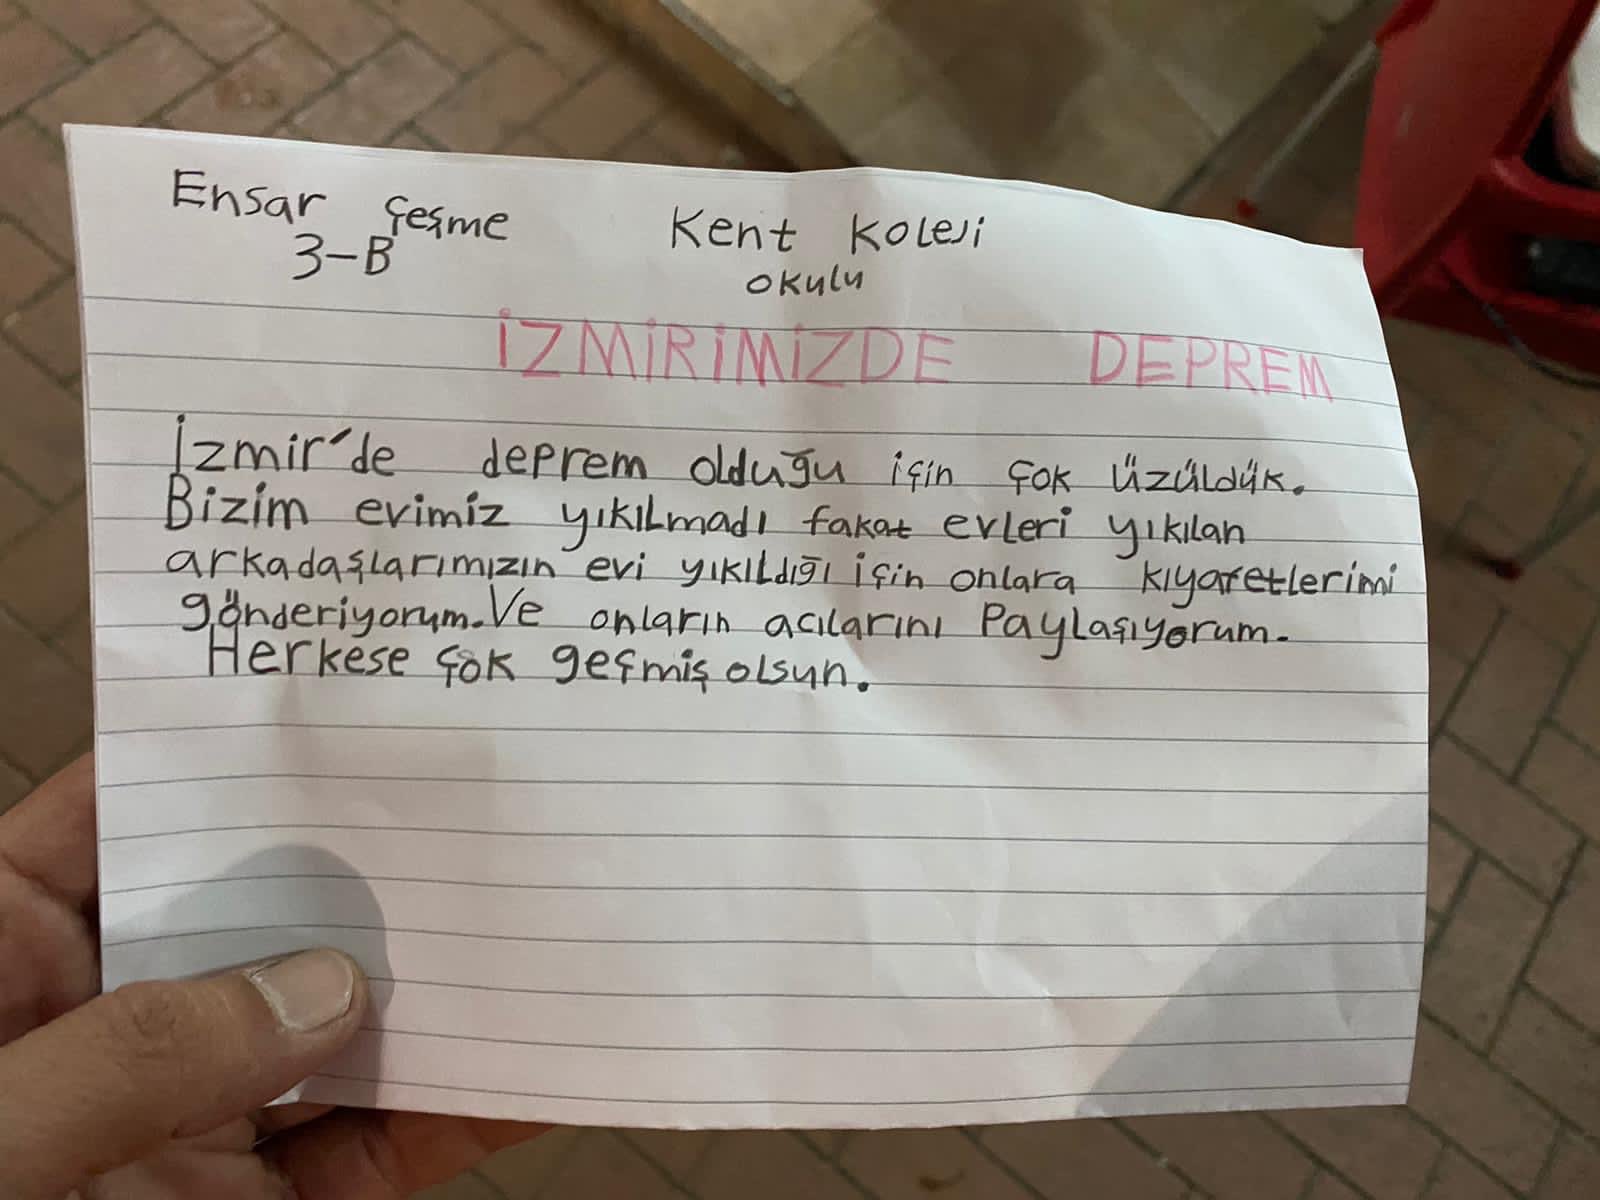 Ensar Çeşme Kent Koleji
3-B okulu
İZMİRİMİZDE DEPREM
İzmir'de deprem olduğu için çok üzüldük.
Bizim evimiz yıkılmadı fakat evleri yıkılan
arkadaşlarımızın evi yıkıldığı için onlara kıyafetlerimi
gönderiyorum. Ve onların acılarını Paylaşıyorum.
Herkese çok geçmiş olsun.